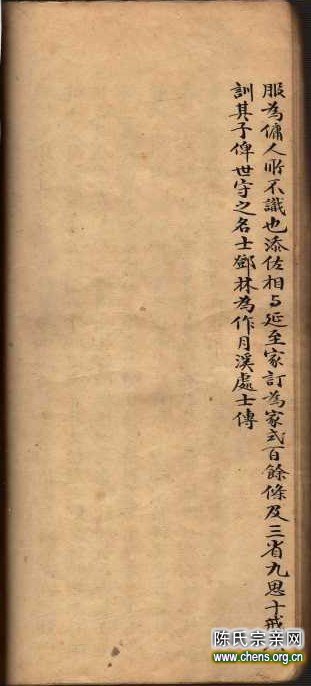 服為傭人所不識也添佐相与延至家訂為家式百餘條及三省九思十戒
訓其子俾世守之名士鄧林為作月溪處士傳
陈氏宗亲网
www.chens.org.cn